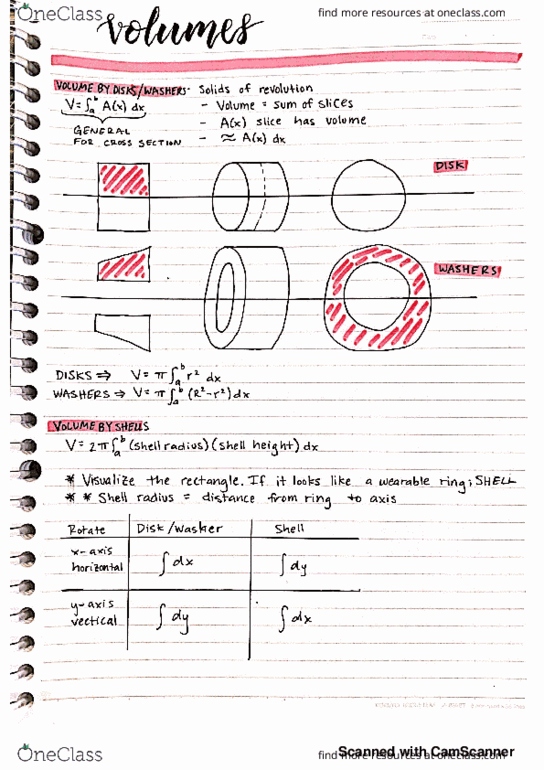 OneClass
find more resources at oneclass.com
volumes
VOLUME BY DISKS/WASHERS- Solids of revolution
V = ∫ₐᵇ A(x) dx - Volume = sum of slices
GENERAL - A(x) slice has volume
FOR CROSS SECTION - ≈ A(x) dx
DISK
WASHERS
DISKS ⇒ V = π∫ₐᵇ r² dx
WASHERS ⇒ V = π∫ₐᵇ (R²-r²)dx
VOLUME BY SHELLS
V = 2π∫ₐᵇ (shell radius)(shell height)dx
* Visualize the rectangle. If it looks like a wearable ring; SHELL
* * Shell radius = distance from ring to axis
Rotate Disk/Washer Shell
x-axis
horizontal ∫dx ∫dy
y-axis
vectical ∫dy ∫dx
OneClass
find more resources at oneclass.com
Scanned with CamScanner